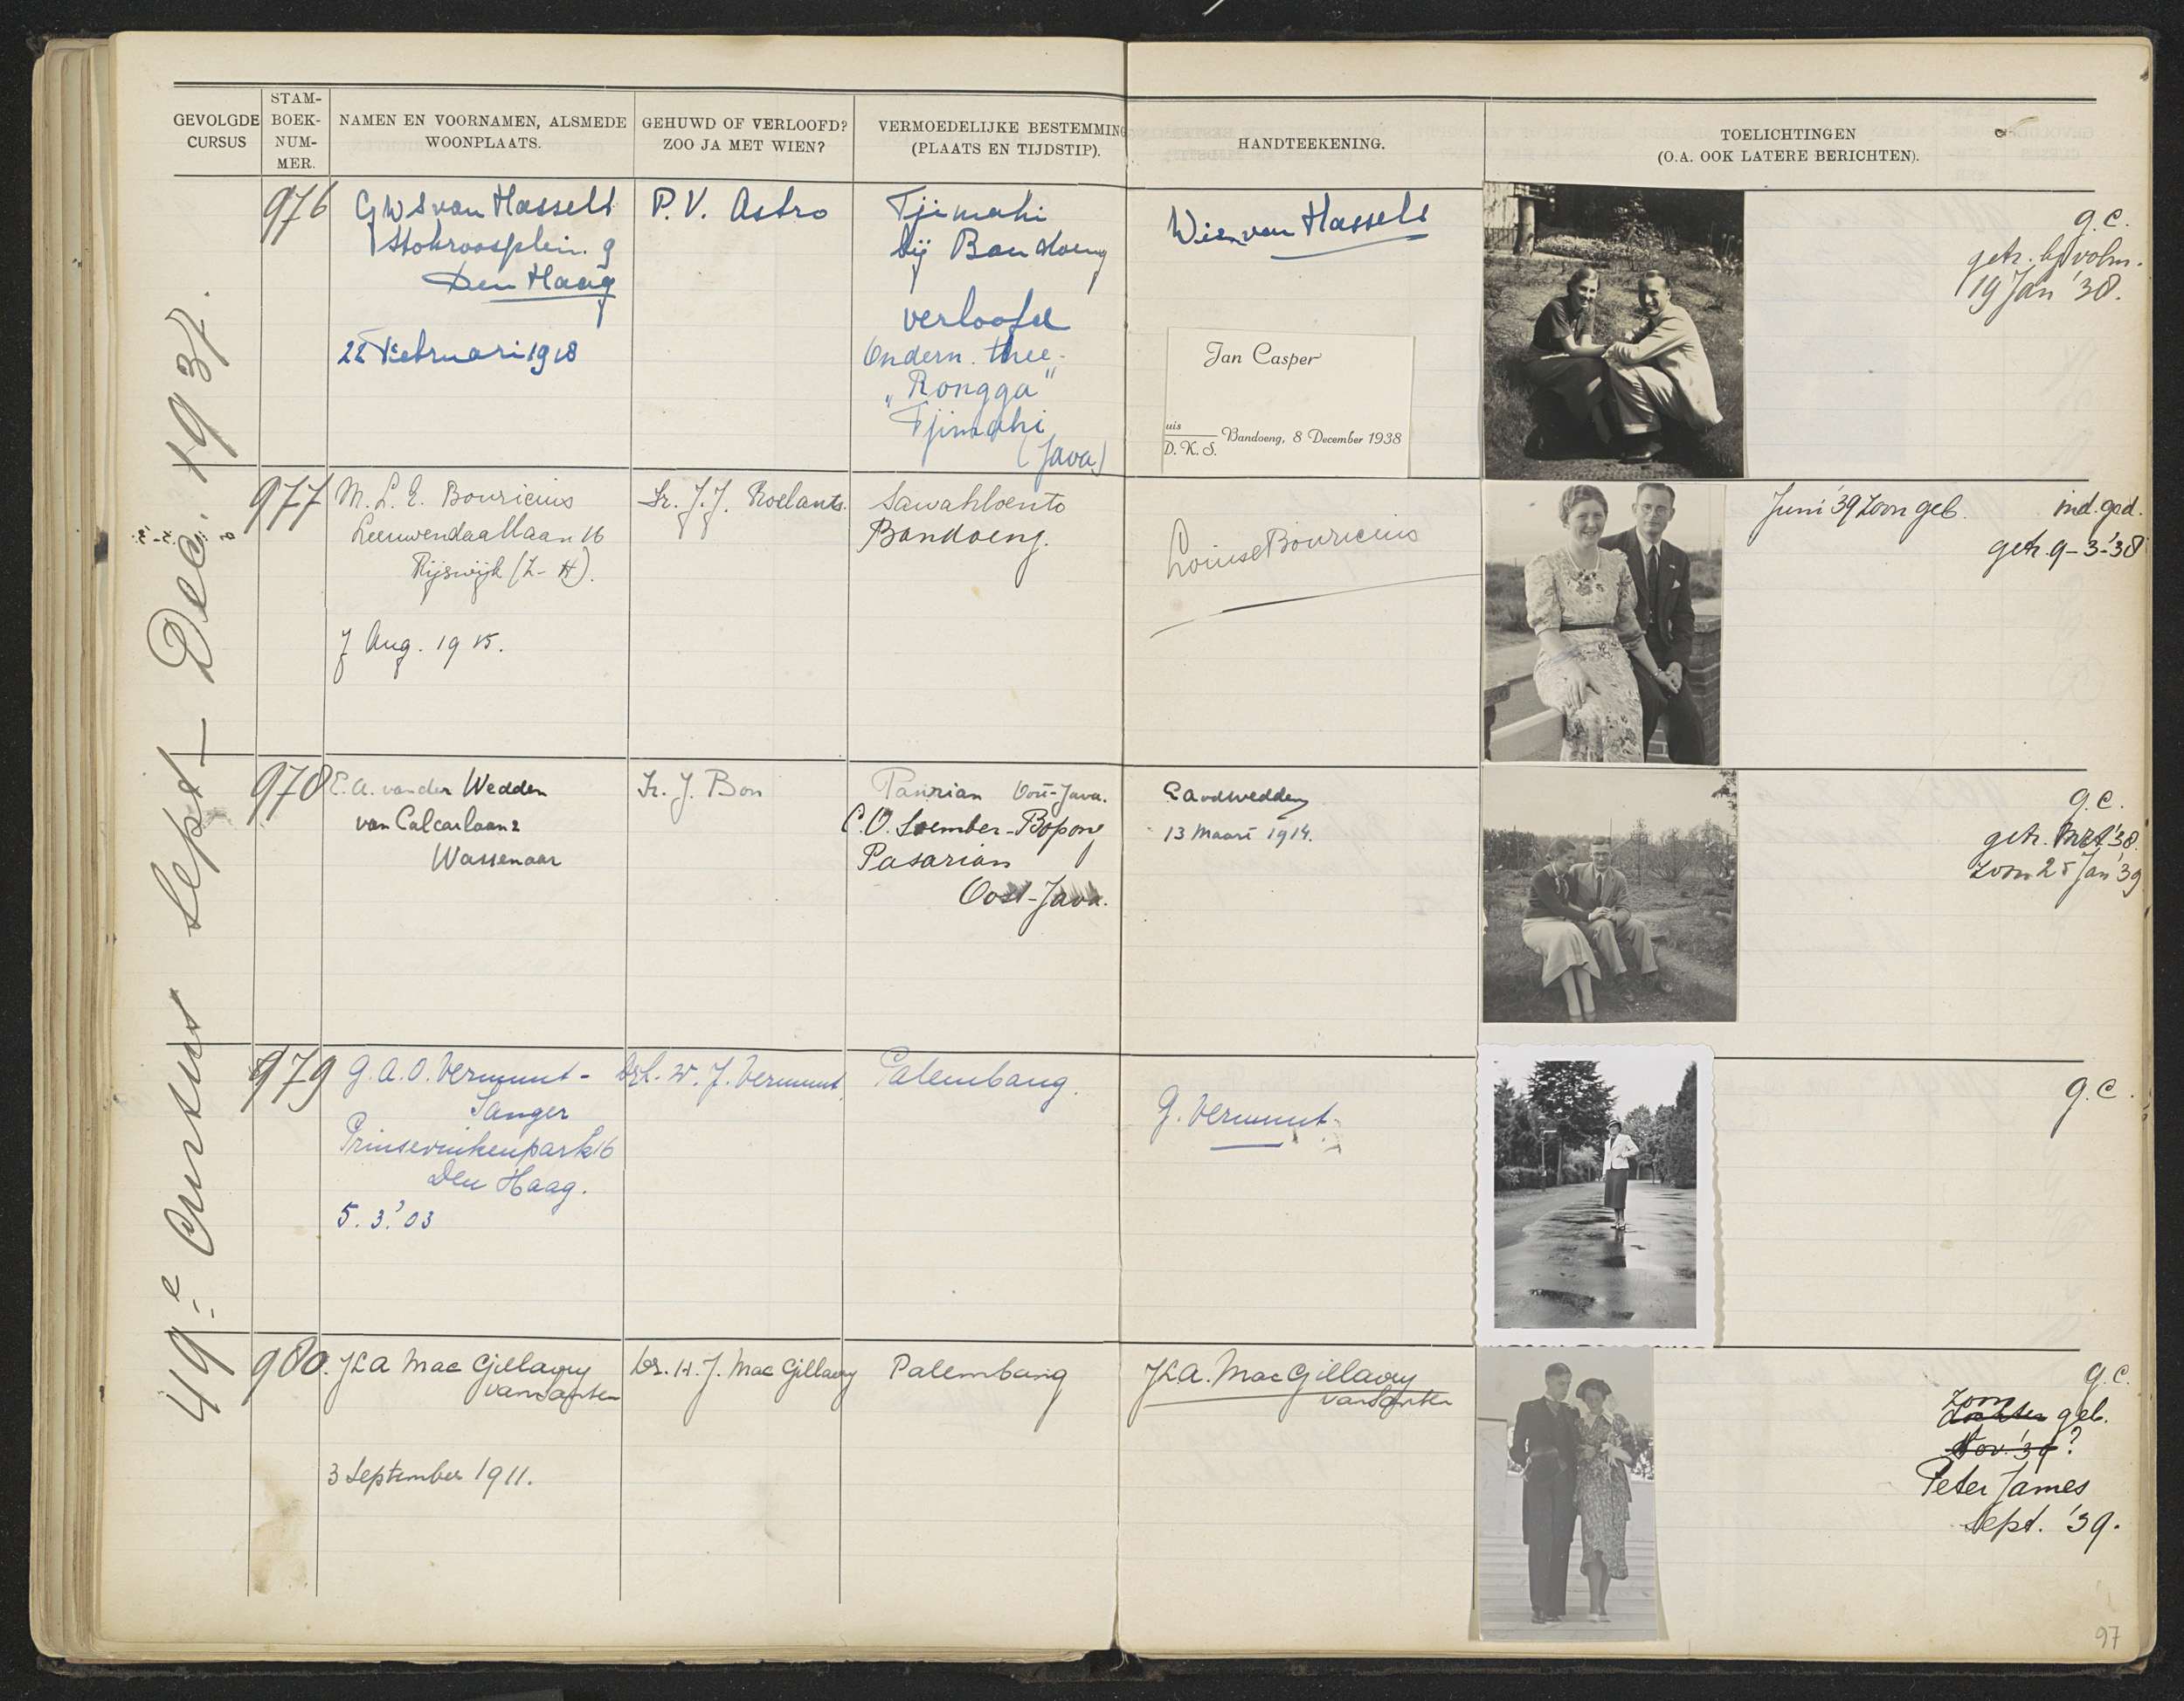 GEVOLGDE
CURSUS
STAM-
BOEK-
NUM-
MER.
NAMEN EN VOORNAMEN, ALSMEDE
WOONPLAATS.
GEHUWD OF VERLOOFD?
ZOO JA MET WIEN?
VERMOEDELIJKE BESTEMMING
(PLAATS EN TIJDSTIP).
HANDTEEKENING.
TOELICHTINGEN
(O.A. OOK LATERE BERICHTEN).
49e Cursus Sept - Dec. 1937.
976
G W S van Hasselt
Stokroosplein. 9
Den Haag
22 Februari 1918
P. V. Astro
Tjimahi
bij Bandoeng
verloofd
Ondern. thee-
„Rongga"
Tjimahi
(Java)
Wies van Hasselt
Jan Casper
uis
D. K. S.
Bandoeng, 8 December 1938
g.c.
getr.
19 Jan '38.
977
M. L. E. Bouricius
Leeuwendaallaan 16
Rijswijk (Z-H).
7 Aug. 1915.
Ir. J. J. Roelants.
Sawahloento
Bandoeng.
Louise Bouricius
Juni '39 zoon geb.
ind. ged.
getr. 9-3-'38
978
E. A. van der Wedden
van Calcarlaan 2
Wassenaar
Ir. J. Bon
Pasirian Oost-Java.
C.O. Soember-Bopong
Pasarian
Oost-Java.
EAvdWedden
13 Maart 1914.
g.c.
getr. Mrt '38.
zoon 25 Jan '39
979
G. A. O. Vermunt-
Sanger
Prinsevinkenpark 16
Den Haag.
5. 3.'03
W. J. Vermunt
Palembang.
G. Vermunt.
g.c.
980.
JLA Mac Gillavry
van Santen
3 September 1911.
Dr. H. J. Mac Gillavry
Palembang
JLA. Mac Gillavry
van Santen
g.c.
zoon
dochter geb.
Nov. '39?
Peter James
Sept. '39.
97